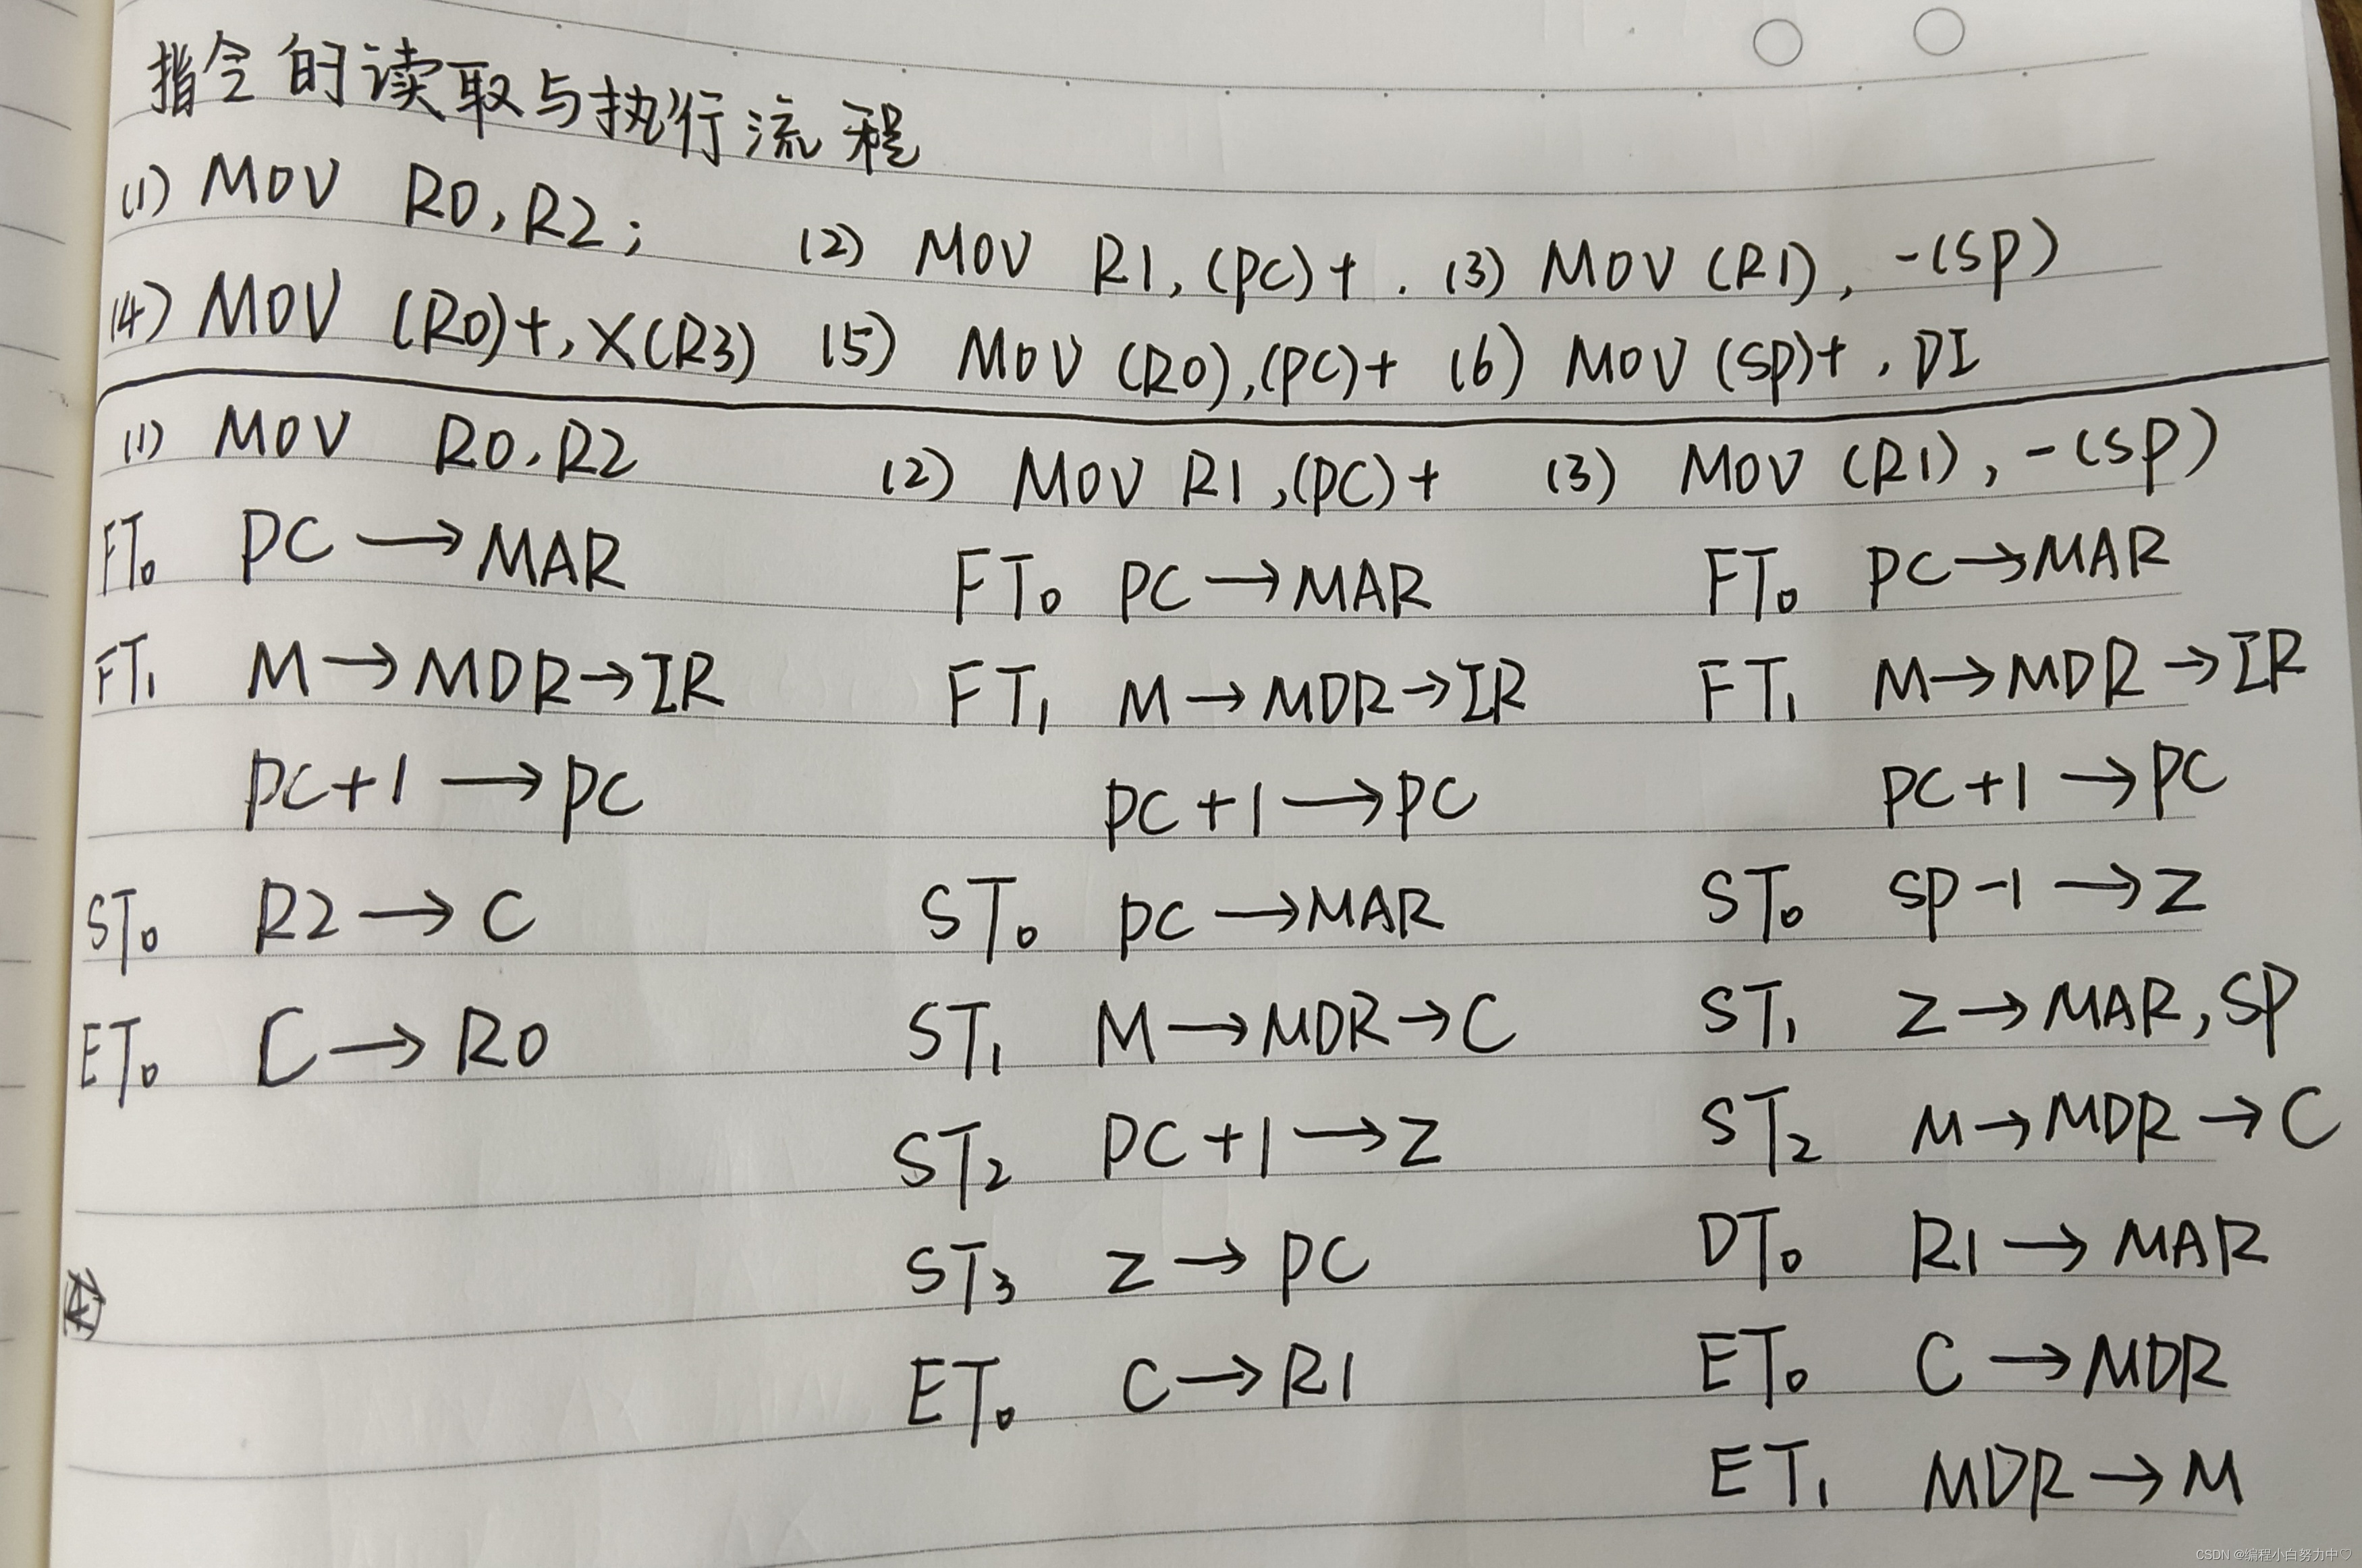 指令的读取与执行流程
(1) MOV R0, R2; (2) MOV R1, (PC)+. (3) MOV (R1), -(SP)
(4) MOV (R0)+, X(R3) (5) MOV (R0), (PC)+ (6) MOV (SP)+, DI
(1) MOV R0, R2
FT₀ PC → MAR
FT₁ M → MDR → IR
PC+1 → PC
ST₀ R2 → C
ET₀ C → R0
(2) MOV R1, (PC)+
FT₀ PC → MAR
FT₁ M → MDR → IR
PC+1 → PC
ST₀ PC → MAR
ST₁ M → MDR → C
ST₂ PC+1 → Z
ST₃ Z → PC
ET₀ C → R1
(3) MOV (R1), -(SP)
FT₀ PC → MAR
FT₁ M → MDR → IR
PC+1 → PC
ST₀ SP-1 → Z
ST₁ Z → MAR, SP
ST₂ M → MDR → C
DT₀ R1 → MAR
ET₀ C → MDR
ET₁ MDR → M
CSDN @编程小白努力中♡